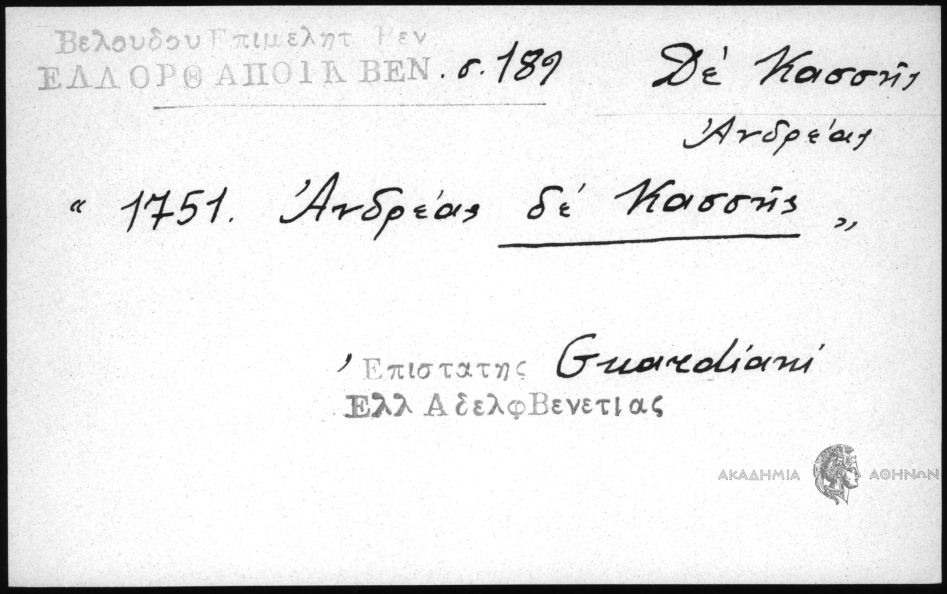 Βελουδου Επιμελητ Ρεν
ΕΛΛ ΟΡΘ ΑΠΟΙΚ ΒΕΝ. σ. 189
Δέ Κασσῆς
Ἀνδρέας
“ 1751. Ἀνδρέας δέ Κασσῆς „
Ἐπιστατης Guardiani
Ελλ Αδελφ Βενετιας
ΑΚΑΔΗΜΙΑ ΑΘΗΝΩΝ